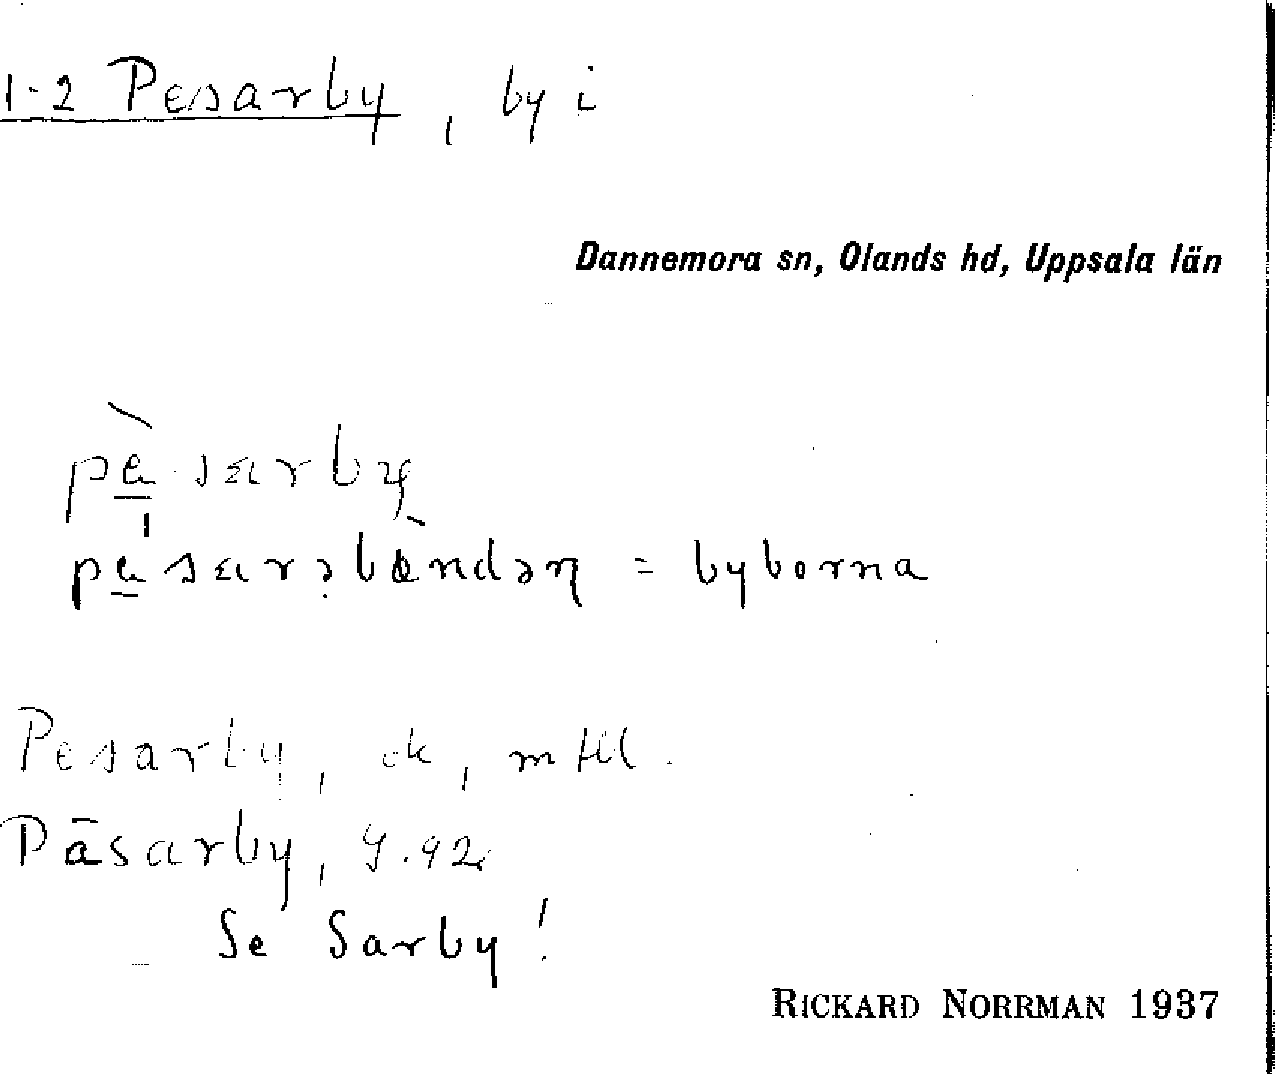 1-2 Pesarby, by i
Dannemora sn, Olands hd, Uppsala län
byborna
Pesarby, ek, mtl.
Päsarby, G. 92.
Se Sarby!
RICKARD NORRMAN 1937